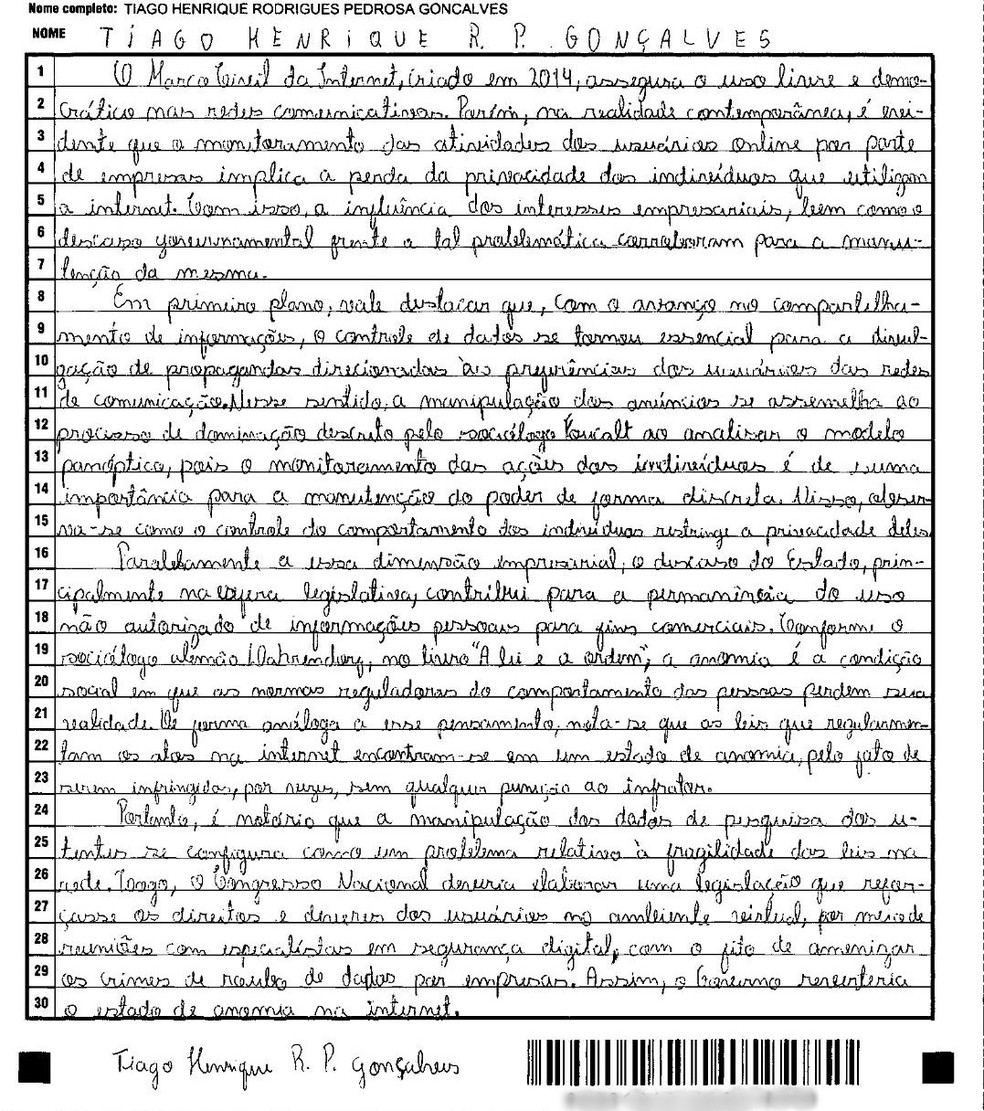 Nome completo: TIAGO HENRIQUE RODRIGUES PEDROSA GONCALVES
NOME TIAGO HENRIQUE R. P. GONÇALVES
1 O Marco Civil da Internet, criado em 2014, assegura o uso livre e demo-
2 crático nas redes comunicativas. Porém, na realidade contemporânea, é evi-
3 dente que o monitoramento das atividades dos usuários online por parte
4 de empresas implica a perda da privacidade dos indivíduos que utilizam
5 a internet. Com isso, a influência dos interesses empresariais, bem como o
6 descaso governamental frente a tal problemática corroboram para a manu-
7 tenção da mesma.
8 Em primeiro plano, vale destacar que, com o avanço no compartilha-
9 mento de informações, o controle de dados se tornou essencial para a divul-
10 gação de propagandas direcionadas às preferências dos usuários das redes
11 de comunicação. Nesse sentido, a manipulação dos anúncios se assemelha ao
12 processo de dominação descrito pelo sociólogo Foucalt ao analisar o modelo
13 panóptico, pois o monitoramento das ações dos indivíduos é de suma
14 importância para a manutenção do poder de forma discreta. Nisso, obser-
15 va-se como o controle do comportamento dos indivíduos restringe a privacidade deles.
16 Paralelamente a essa dimensão empresarial, o descaso do Estado, prin-
17 cipalmente na esfera legislativa, contribui para a permanência do uso
18 não autorizado de informações pessoais para fins comerciais. Conforme o
19 sociólogo alemão Dahrendorf, no livro "A lei e a ordem", a anomia é a condição
20 social em que as normas reguladoras do comportamento das pessoas perdem sua
21 validade. De forma análoga a esse pensamento, nota-se que as leis que regulamen-
22 tam os atos na internet encontram-se em um estado de anomia, pelo fato de
23 serem infringidas, por vezes, sem qualquer punição ao infrator.
24 Portanto, é notório que a manipulação dos dados de pesquisa dos u-
25 tentes se configura como um problema relativo à fragilidade das leis na
26 rede. Logo, o Congresso Nacional deveria elaborar uma legislação que refor-
27 çasse os direitos e deveres dos usuários no ambiente virtual, por meio de
28 reuniões com especialistas em segurança digital, com o fito de amenizar
29 os crimes de roubo de dados por empresas. Assim, o Governo reverteria
30 o estado de anomia na internet.
Tiago Henrique R. P. Gonçalves